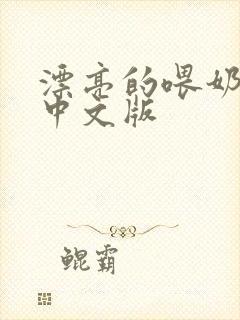 漂亮的喂奶
中文版
鲲霸